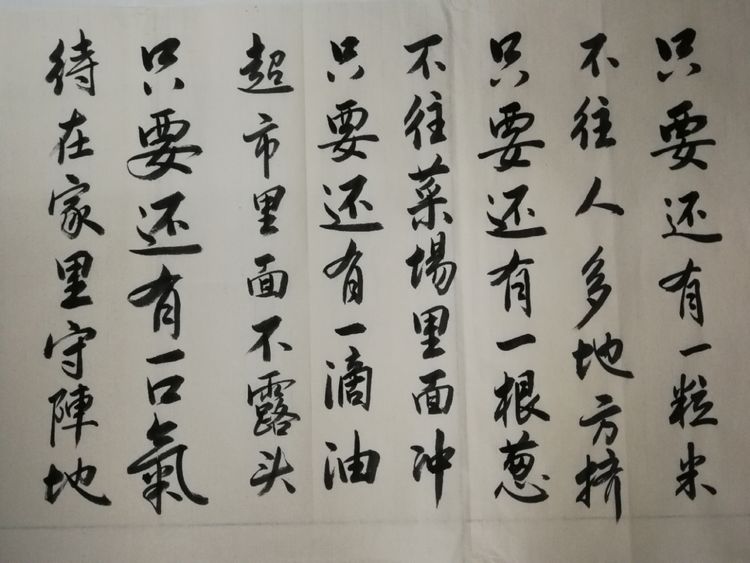 只要还有一粒米
不往人多地方挤
只要还有一根葱
不往菜場里面冲
只要还有一滴油
超市里面不露头
只要还有一口氣
待在家里守陣地